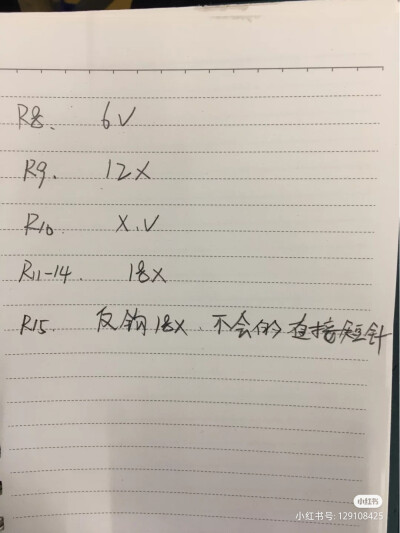 R8. 6V
R9. 12X
R10 X.V
R11-14. 18X
R15. 反钩18X.不会的直接短针
小红书
小红书号:129108425